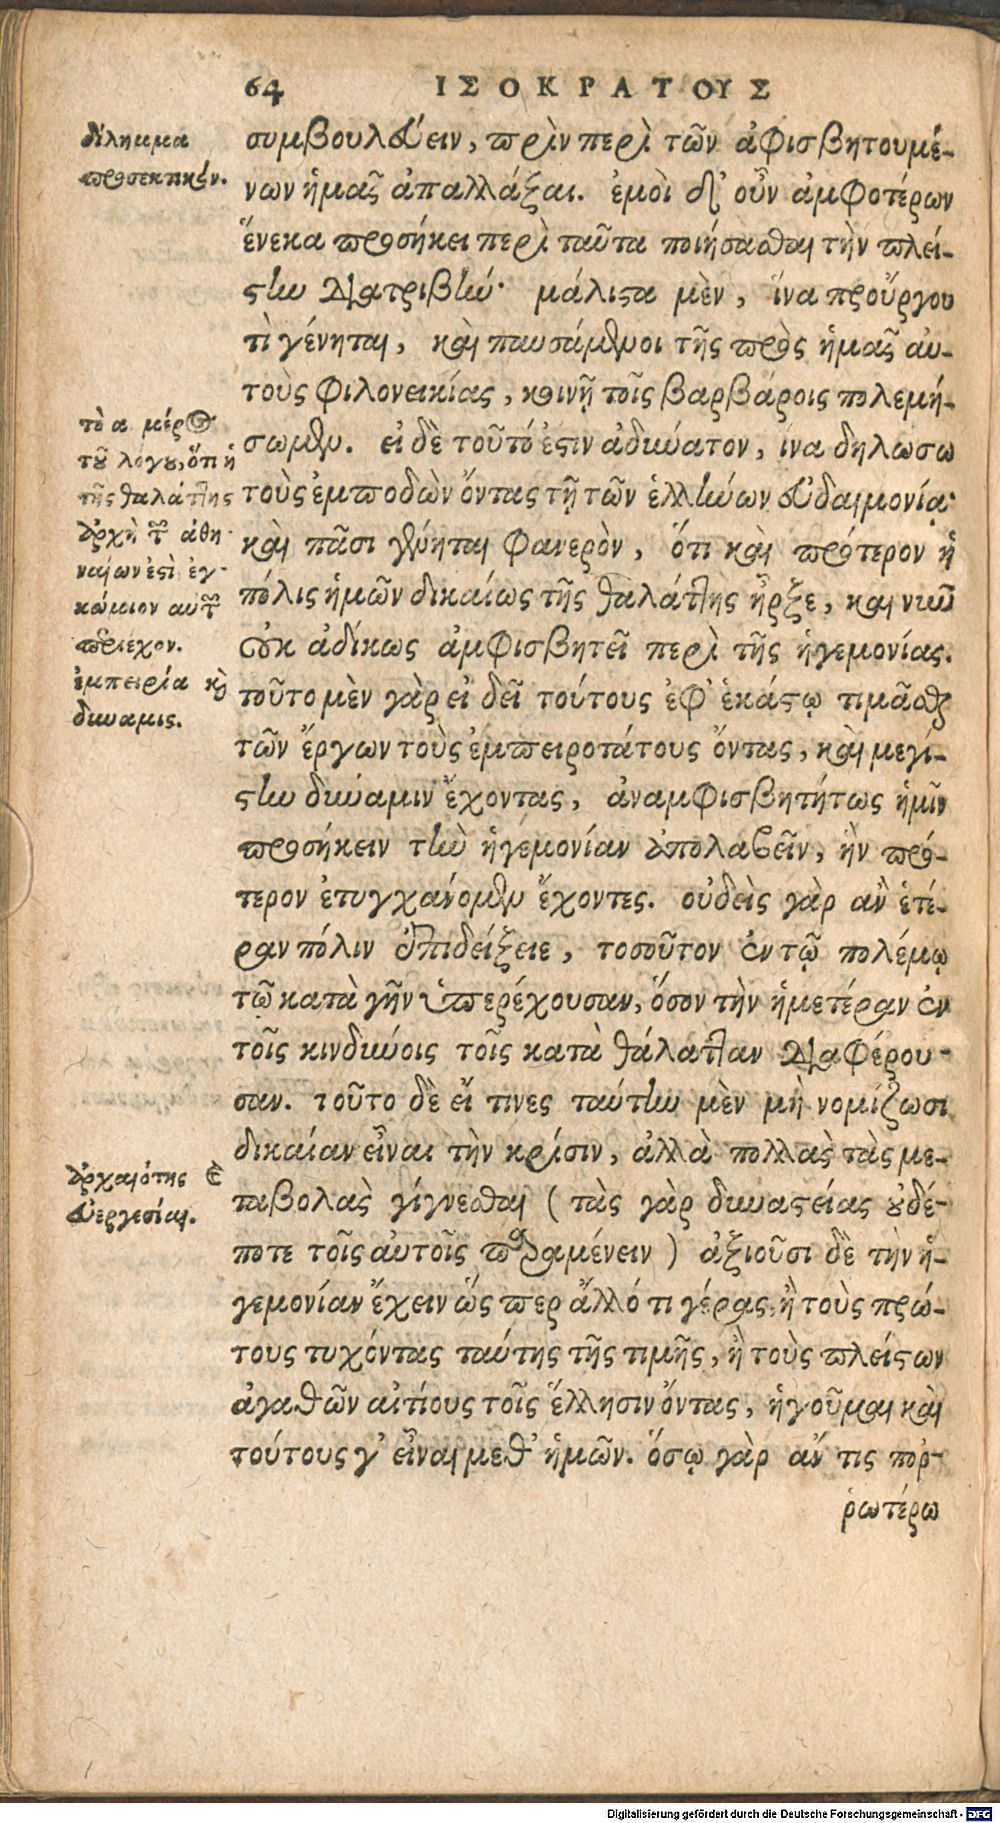 64 ΙΣΟΚΡΑΤΟΥΣ
δίλημμα
προσεκτικόν.
συμβουλεύειν, πρὶν περὶ τῶν ἀμφισβητουμέ-
νων ἡμᾶς ἀπαλλάξαι. ἐμοὶ δ' οὖν ἀμφοτέρων
ἕνεκα προσήκει περὶ ταῦτα ποιήσασθαι τὴν πλεί-
στην διατριβήν· μάλιστα μὲν, ἵνα προὔργου
τὶ γένηται, καὶ παυσάμενοι τῆς πρὸς ἡμᾶς αὐ-
τοὺς φιλονεικίας, κοινῇ τοῖς βαρβάροις πολεμή-
σωμεν. εἰ δὲ τοῦτό ἐστιν ἀδύνατον, ἵνα δηλώσω
τοὺς ἐμποδὼν ὄντας τῇ τῶν ἑλλήνων εὐδαιμονίᾳ·
καὶ πᾶσι γένηται φανερὸν, ὅτι καὶ πρότερον ἡ
πόλις ἡμῶν δικαίως τῆς θαλάττης ἦρξε, καὶ νῦν
οὐκ ἀδίκως ἀμφισβητεῖ περὶ τῆς ἡγεμονίας.
τὸ α μέρος
τοῦ λόγου, ὅτι ἡ
τῆς θαλάττης
ἀρχὴ τῶν ἀθη-
ναίων ἐστὶ ἐγ-
κώμιον αὐτῶν
περιέχον.
ἐμπειρία καὶ
δύναμις.
τοῦτο μὲν γὰρ εἰ δεῖ τούτους ἐφ' ἑκάστῳ τιμᾶσθαι
τῶν ἔργων τοὺς ἐμπειροτάτους ὄντας, καὶ μεγί-
στην δύναμιν ἔχοντας, ἀναμφισβητήτως ἡμῖν
προσήκειν τὴν ἡγεμονίαν ἀπολαβεῖν, ἣν πρό-
τερον ἐτυγχάνομεν ἔχοντες. οὐδεὶς γὰρ ἂν ἑτέ-
ραν πόλιν ἐπιδείξειε, τοσοῦτον ἐν τῷ πολέμῳ
τῷ κατὰ γῆν ὑπερέχουσαν, ὅσον τὴν ἡμετέραν ἐν
τοῖς κινδύνοις τοῖς κατὰ θάλατταν διαφέρου-
σαν. τοῦτο δὲ εἴ τινες ταύτην μὲν μὴ νομίζωσι
δικαίαν εἶναι τὴν κρίσιν, ἀλλὰ πολλὰς τὰς με-
ταβολὰς γίγνεσθαι ( τὰς γὰρ δυναστείας οὐδέ-
ποτε τοῖς αὐτοῖς παραμένειν ) ἀξιοῦσι δὲ τὴν ἡ-
γεμονίαν ἔχειν ὥς περ ἄλλό τι γέρας, ἢ τοὺς πρώ-
τους τυχόντας ταύτης τῆς τιμῆς, ἢ τοὺς πλείστων
ἀγαθῶν αἰτίους τοῖς ἕλλησιν ὄντας, ἡγοῦμαι καὶ
τούτους γ' εἶναι μεθ' ἡμῶν. ὅσῳ γὰρ ἄν τις πορ-
ἀρχαιότης καὶ
εὐεργεσίαι.
ρωτέρω
Digitalisierung gefördert durch die Deutsche Forschungsgemeinschaft - DFG